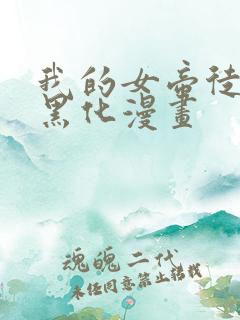 我的女帝徒
黑化漫畫
魂魄二代
未经同意禁止转载